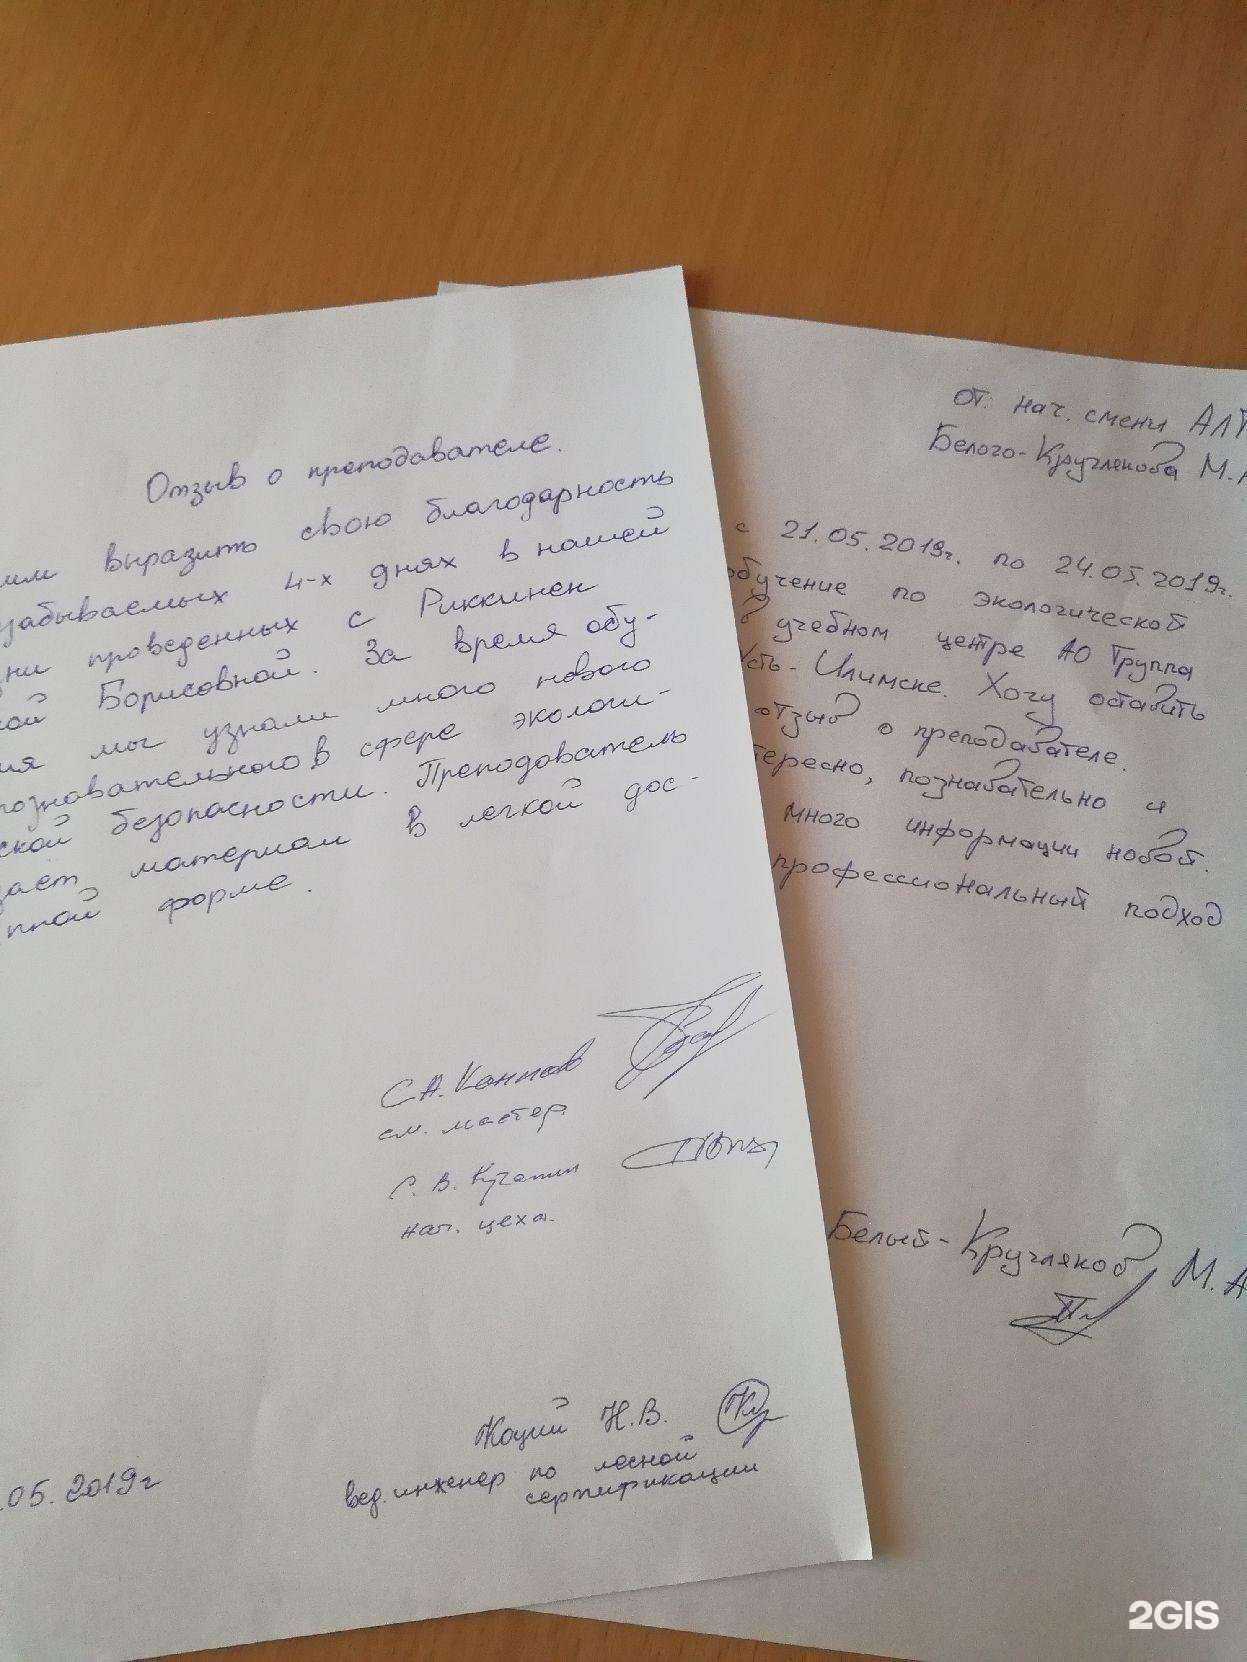 Отзыв о преподавателе.
выразить свою благодарность
забываемых 4-х днях в нашей
ни проведенных с Риккинен
ой Борисовной. За время обу-
ия мы узнали много нового
познавательного в сфере экологи-
ской безопасности. Преподаватель
дает материал в легкой дос-
пной форме.
С.А.
см. мастер.
С. В.
нач. цеха.
Коций Н.В.
вед. инженер по лесной
сертификации
.05.2019г
от. нач. смены АЛТ
Белого-Круглякова М.А
с 21.05.2019г. по 24.05.2019г.
обучение по экологической
в учебном центре АО Группа
Усть-Илимске. Хочу оставить
отзыв о преподавателе.
тересно, познавательно и
много информации новой.
профессиональный подход
Белый-Кругляков М.А
2GIS